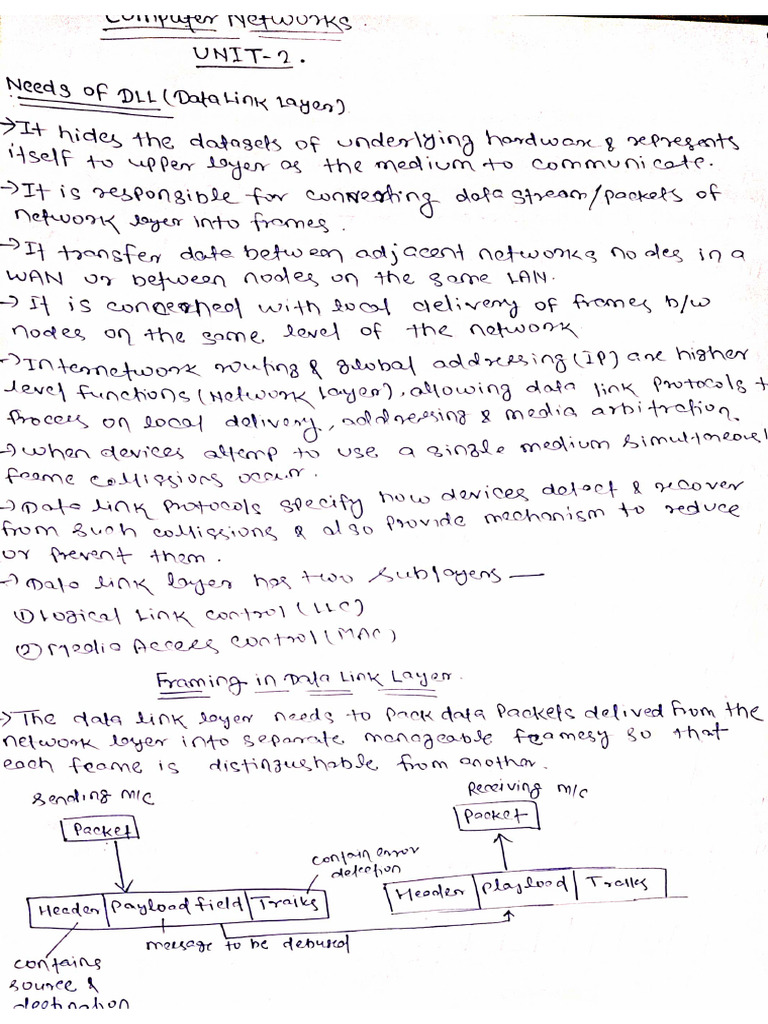 Computer Networks.
UNIT-2.
Needs of DLL (Data Link Layer)
→ It hides the datasets of underlying hardware & represents
itself to upper layer as the medium to communicate.
→ It is responsible for converting data stream/packets of
network layer into frames.
→ It transfer data between adjacent networks nodes in a
WAN or between nodes on the same LAN.
→ It is concerned with local delivery of frames b/w
nodes on the same level of the network
→ Internetwork routing & global addressing (IP) are higher
level functions (Network Layer), allowing data link protocols t
process on local delivery, addressing & media arbitration.
→ when devices attemp to use a single medium simultaneousl
frame collissions occur.
→ Data link protocols specify how devices detect & recover
from such collissions & also provide mechanism to reduce
or prevent them.
→ Data link layer has two sublayers —
① Logical Link control (LLC)
② Media Access Control (MAC)
Framing in Data Link Layer.
→ The data link layer needs to pack data packets delived from the
network layer into separate manageable framesy so that
each frame is distingushable from another.
Sending M/C
Receiving M/C
Packet
Packet
contain error
detection
Header Payload field Trailks
Header Playload Trailks
message to be
contains
source &
destination